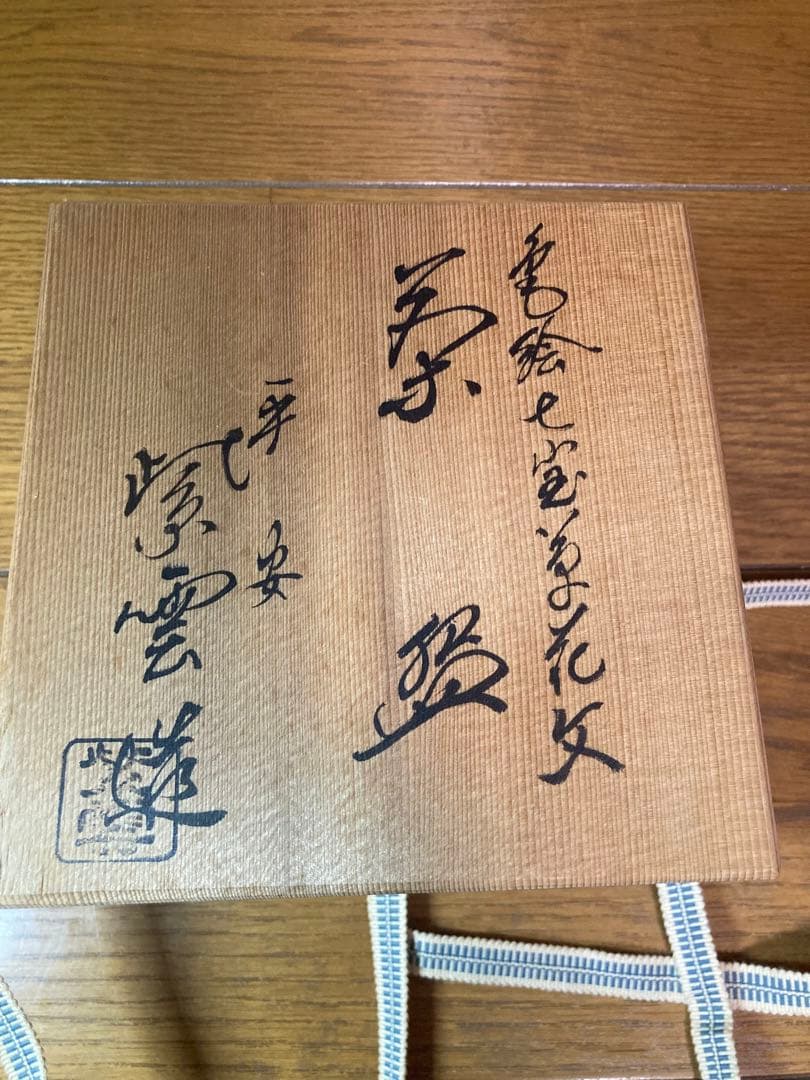 色絵七宝草花文
茶盌
平安
紫雲造